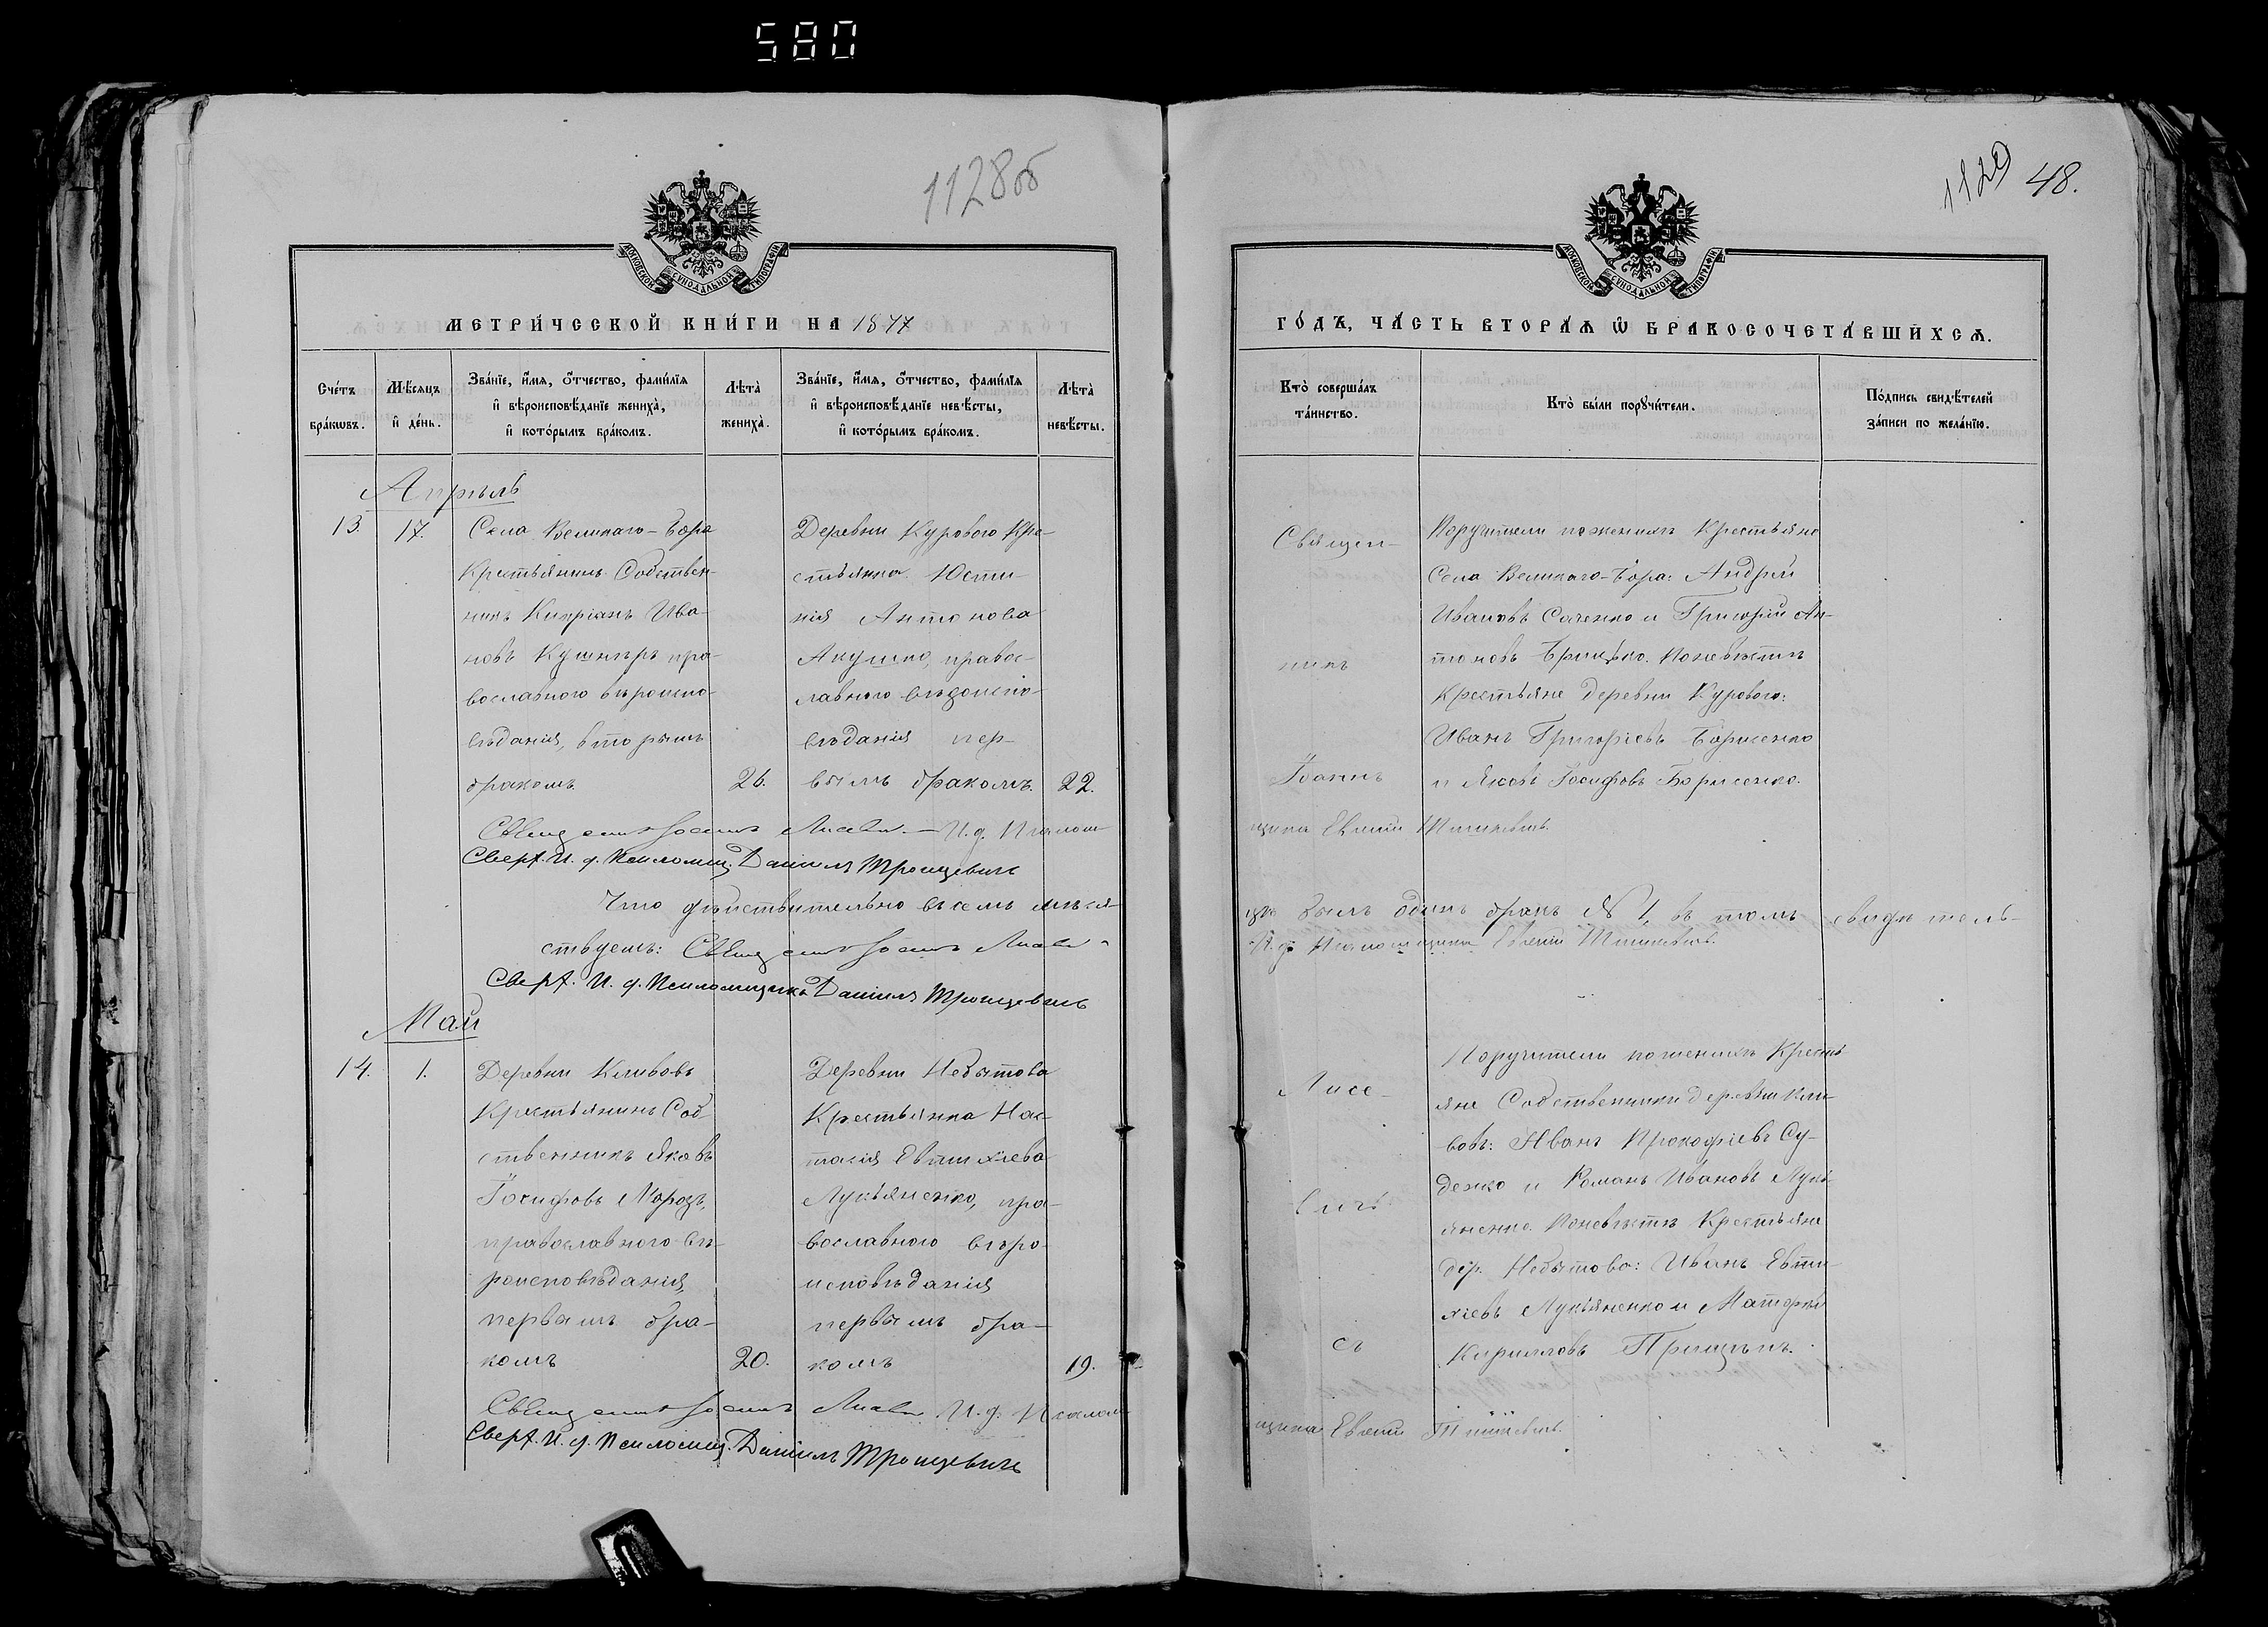 580
1128об
МОСКОВСКОЙ СУНОДАЛЬНОЙ ТИПОГРАФІИ
МЕТРИЧЕССКОЙ КНИГИ НА 1877
Счетъ браковъ.
Мѣсяцъ и день.
Званіе, имя, отчество, фамилія и вѣроисповѣданіе жениха, и которымъ бракомъ.
Лѣта жениха.
Званіе, имя, отчество, фамилія и вѣроисповѣданіе невѣсты, и которымъ бракомъ.
Лѣта невѣсты.
Апрѣль
13. 17.
Села Великаго-Бора
Крестьянинъ Собствен-
никъ Кипріанъ Ива-
новъ Кушнеръ пра-
вославнаго вѣроиспо-
вѣданія, вторымъ
бракомъ 26.
Деревни Курового Кре-
стьянка Юсти-
нія Антонова
Акушко, правос-
лавного вѣроиспо-
вѣданія пер-
вымъ бракомъ. 22.
И. д. Псалом-
И. д. Псаломщ. Даніилъ Троицевичъ
Что дѣйствительно въ семъ мѣся-
ствуемъ:
И. д. Псаломщика Даніилъ Троицевичъ
Май
14. 1.
Деревни Кливовъ
Крестьянинъ Соб-
ственникъ Яковъ
Іосифовъ Морозъ,
православного вѣ-
роисповѣданія,
первымъ бра-
комъ 20.
Деревни Небытова
Крестьянка Нас-
тасія Евтихіева
Лукьяненко, пра-
вославного вѣро-
исповѣданія
первымъ бра-
комъ 19.
И. д. Псалом-
И. д. Псаломщ. Даніилъ Троицевичъ
1129 48.
МОСКОВСКОЙ СУНОДАЛЬНОЙ ТИПОГРАФІИ
ГОДЪ, ЧАСТЬ ВТОРАЯ Ѿ БРАКОСОЧЕТАВШИХСЯ.
Кто совершалъ таинство.
Кто были поручители.
Подпись свидѣтелей записи по желанію.
Священ-
никъ
Іоаннъ
Поручители поженихѣ Крестьяне
Села Великаго-Бора: Андрей
Ивановъ Саченко и Григорій Ан-
тоновъ Поневѣстѣ
Крестьяне деревни Курового:
Иванъ Григорьевъ Борисенко
и Яковъ Іосифовъ Борисенко.
щика Евгеній
цѣ былъ одинъ бракъ № 1, въ томъ свидѣтель-
И. д. Псаломщика Евгеній
Лисе-
вичъ
съ
Поручители поженихѣ Кресть-
яне Собственники деревни Кли-
вовъ: Иванъ Прокофіевъ Су-
денко и Романъ Ивановъ Лукь-
яненко. Поневѣстѣ Крестьяне
дер. Небытова: Иванъ Евти-
хіевъ Лукьяненко и Матфей
Кирилловъ
щика Евгеній